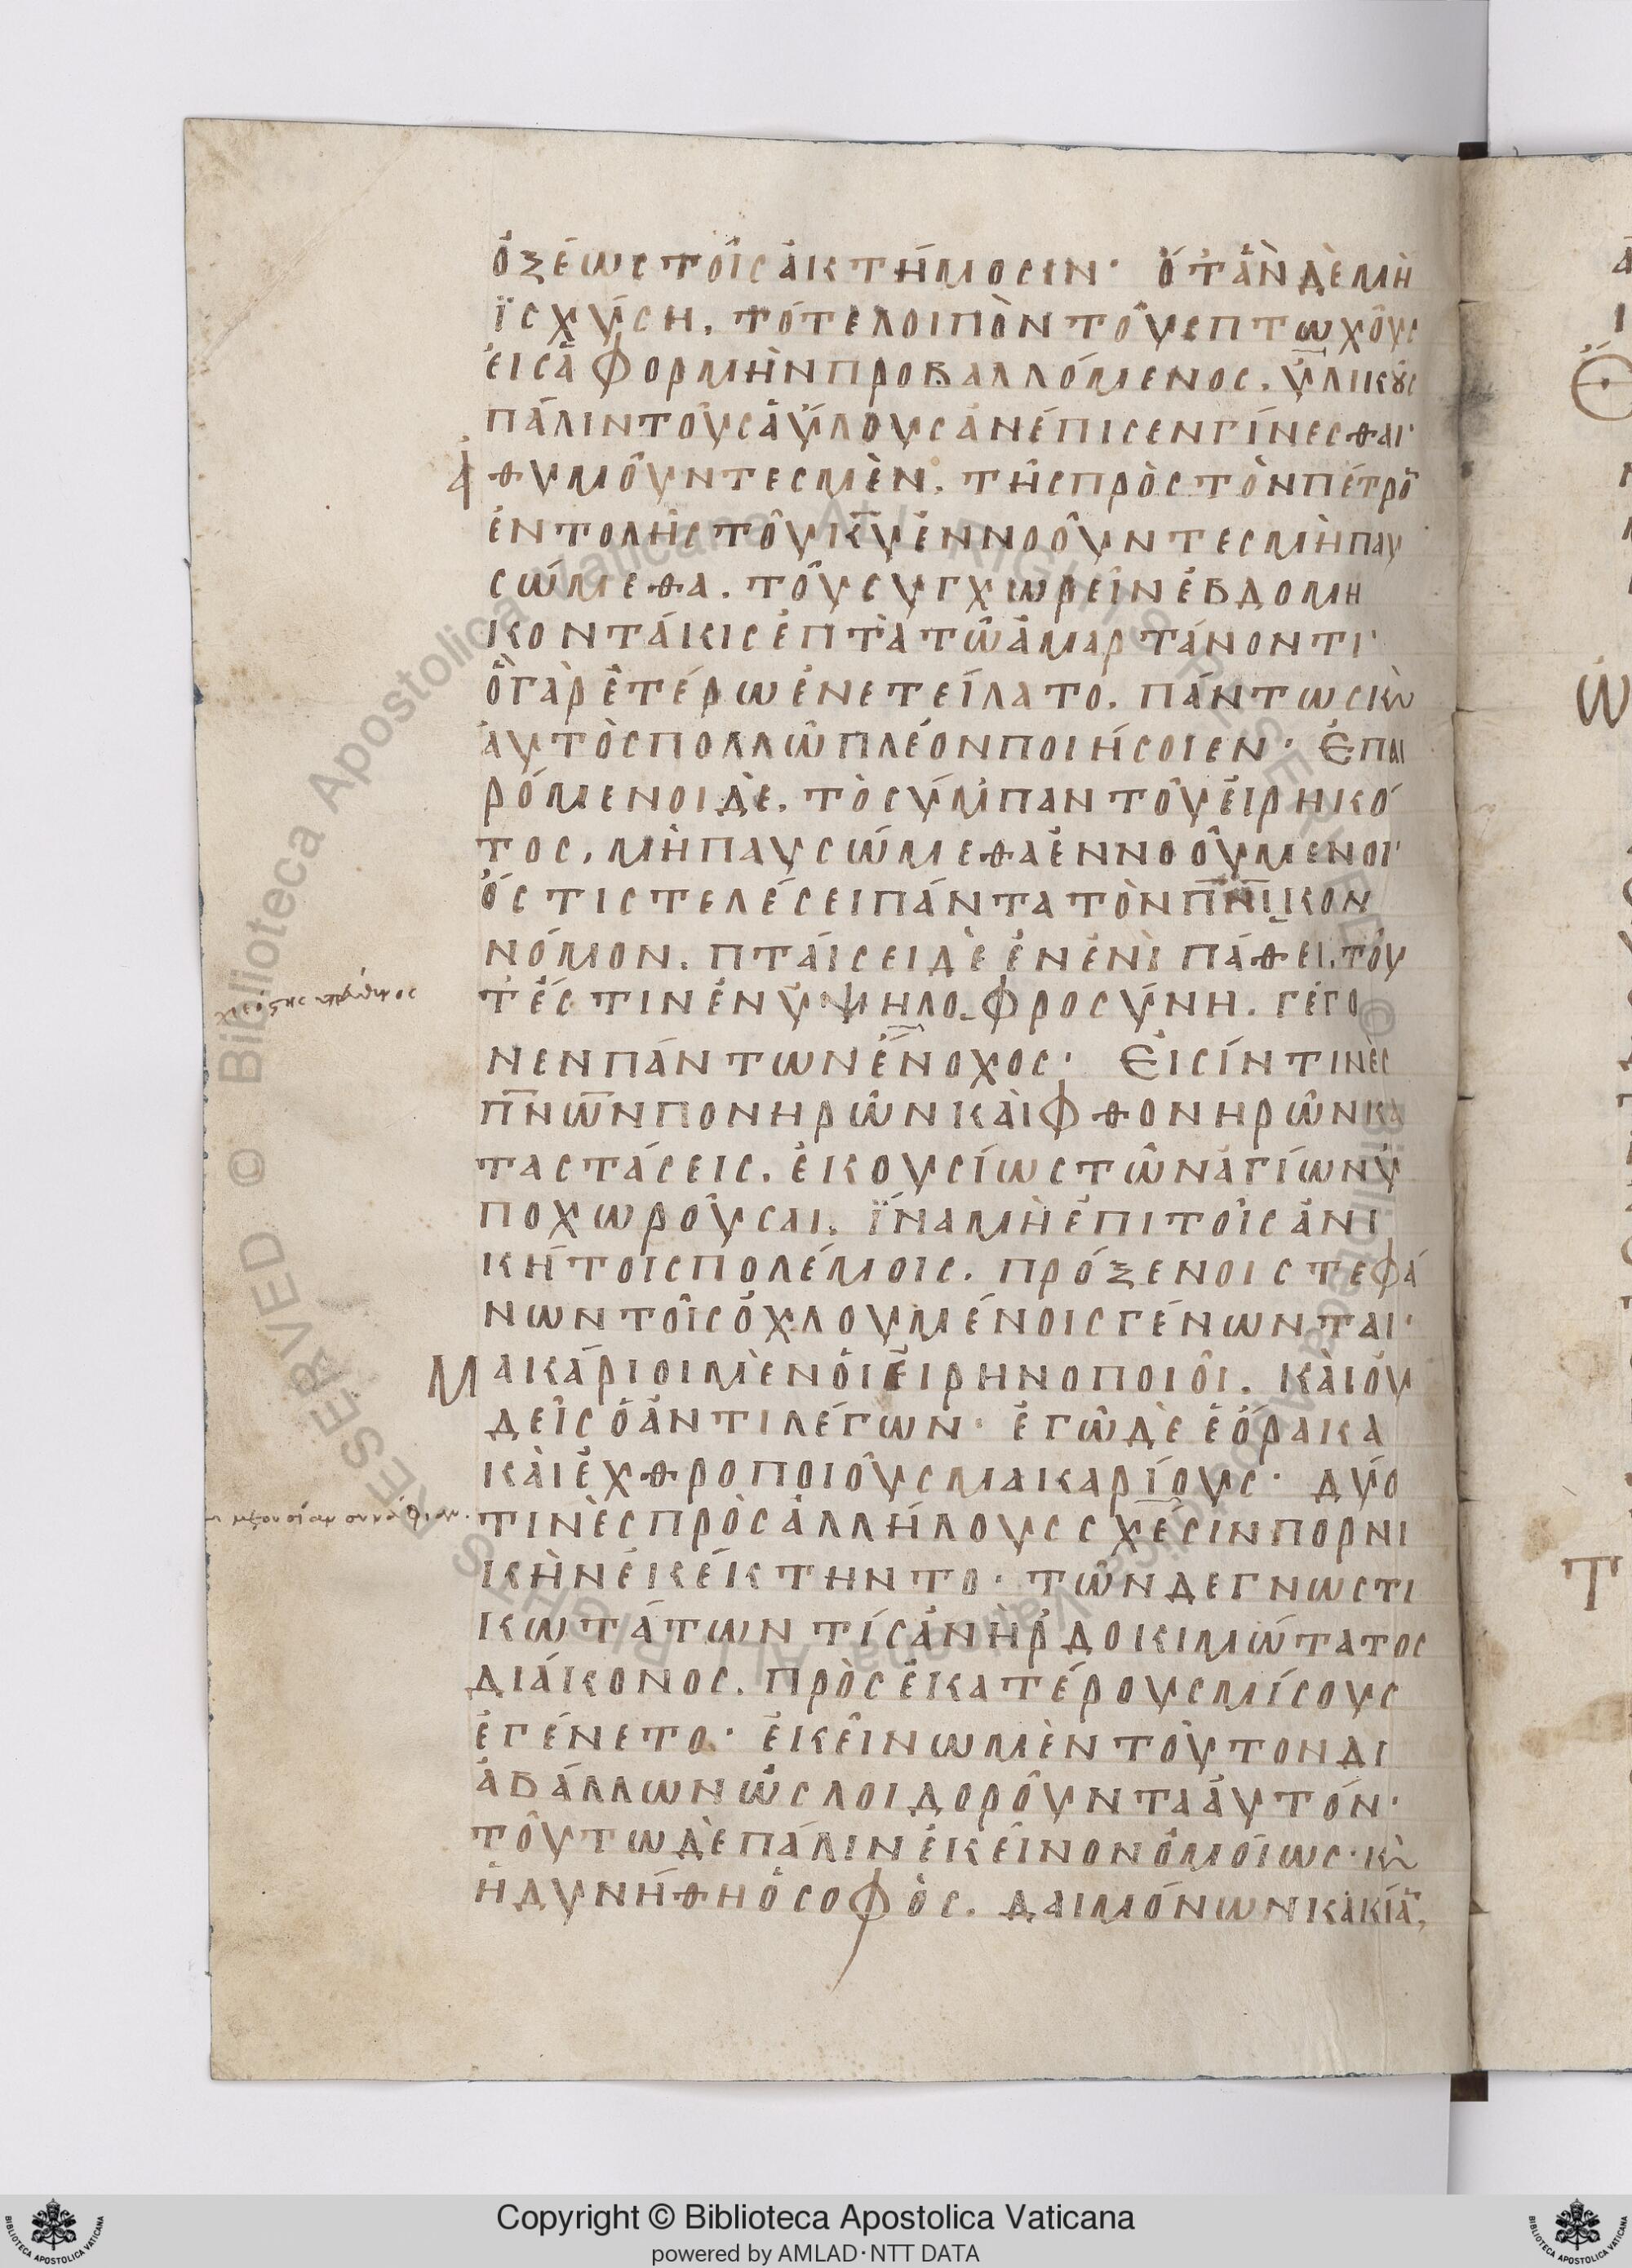 ὀξέως τοῖς ἀκτήμοσιν· ὅτ' ἂν δὲ μὴ
ϊσχύση, τότε λοιπὸν τοὺς πτωχοὺς
εἰς ἀφορμὴν προβαλλόμενος. ὑλικοὺς
πάλιν τοὺς ἀΰλους ἀνέπισεν γίνεσθαι·
Ἀ θυμοῦντες μὲν, τῆς πρὸς τὸν πέτρο̅
ἐντολῆς τοῦ κ̅υ̅ ἐννοοῦντες μὴ παυ
σώμεθα. τοῦ συγχωρεῖν ἑβδομη
κοντάκις ἑπτὰ τῶ ἁμαρτάνοντι·
ὃ γὰρ ἑτέρω ἐνετείλατο, πάντως κὶ
αυτὸς πολλῶ πλέον ποιήσοιεν· Ἐπαι
ρόμενοι δὲ, τὸ σύμπαν τοῦ εἰρηκό
τος, μὴ παυσώμεθα ἐννοούμενοι·
ὅς τις τελέσει πάντα τὸν π̅ν̅ι̅κον
νόμον. πταίσει δὲ ἐν ἑνὶ πάθει, τοῦ
τ' ἔστιν ἐν ὑψηλοφροσύνη. γέγο
νεν πάντων ἔνοχος· Εἰσίν τινὲς
π̅ν̅ω̅ν πονηρῶν καὶ φθονηρῶν κα
ταστάσεις, ἑκουσίως τῶν ἁγίων ὑ
ποχωροῦσαι, ϊνα μὴ ἐπὶ τοῖς ἀνι
κήτοις πολέμοις. πρόξενοι στεφά
νων τοῖς ὀχλουμένοις γένωνται·
Μακάριοι μὲν οἱ εἰρηνοποιοῖ. καὶ οὐ
δεῖς ὁ ἀντιλέγων· ἐγῶ δὲ ἑόρακα
καὶ ἐχθροποιοὺς μακαρίους· δύο
τινὲς πρὸς ἀλλήλους σχέσιν πορνι
κὴν ἐκέκτηντο· τῶν δε γνωστι
κωτάτων τίς ἀνὴρ δοκιμώτατος
διάκονος. πρὸς ἑκατέρους μίσους
ἐγένετο· ἐκεῖνω μὲν τοῦτον δι
αβάλλων ὡς λοιδοροῦντα αὐτόν·
τοῦτω δὲ πάλιν ἐκεῖνον ὁμοίως· κὶ
ἠδυνήθη ὁ σοφὸς. δαιμόνων κακία̅,